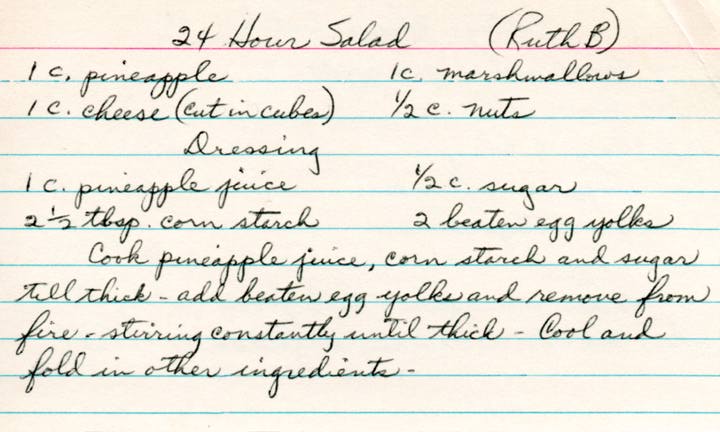 24 Hour Salad (Ruth B)
1 c. pineapple 1c. marshmallows
1 c. cheese (cut in cubes) 1/2 c. nuts
Dressing
1 c. pineapple juice 1/2 c. sugar
2 1/2 tbsp. corn starch 2 beaten egg yolks
Cook pineapple juice, corn starch and sugar
till thick - add beaten egg yolks and remove from
fire - stirring constantly until thick - Cool and
fold in other ingredients -